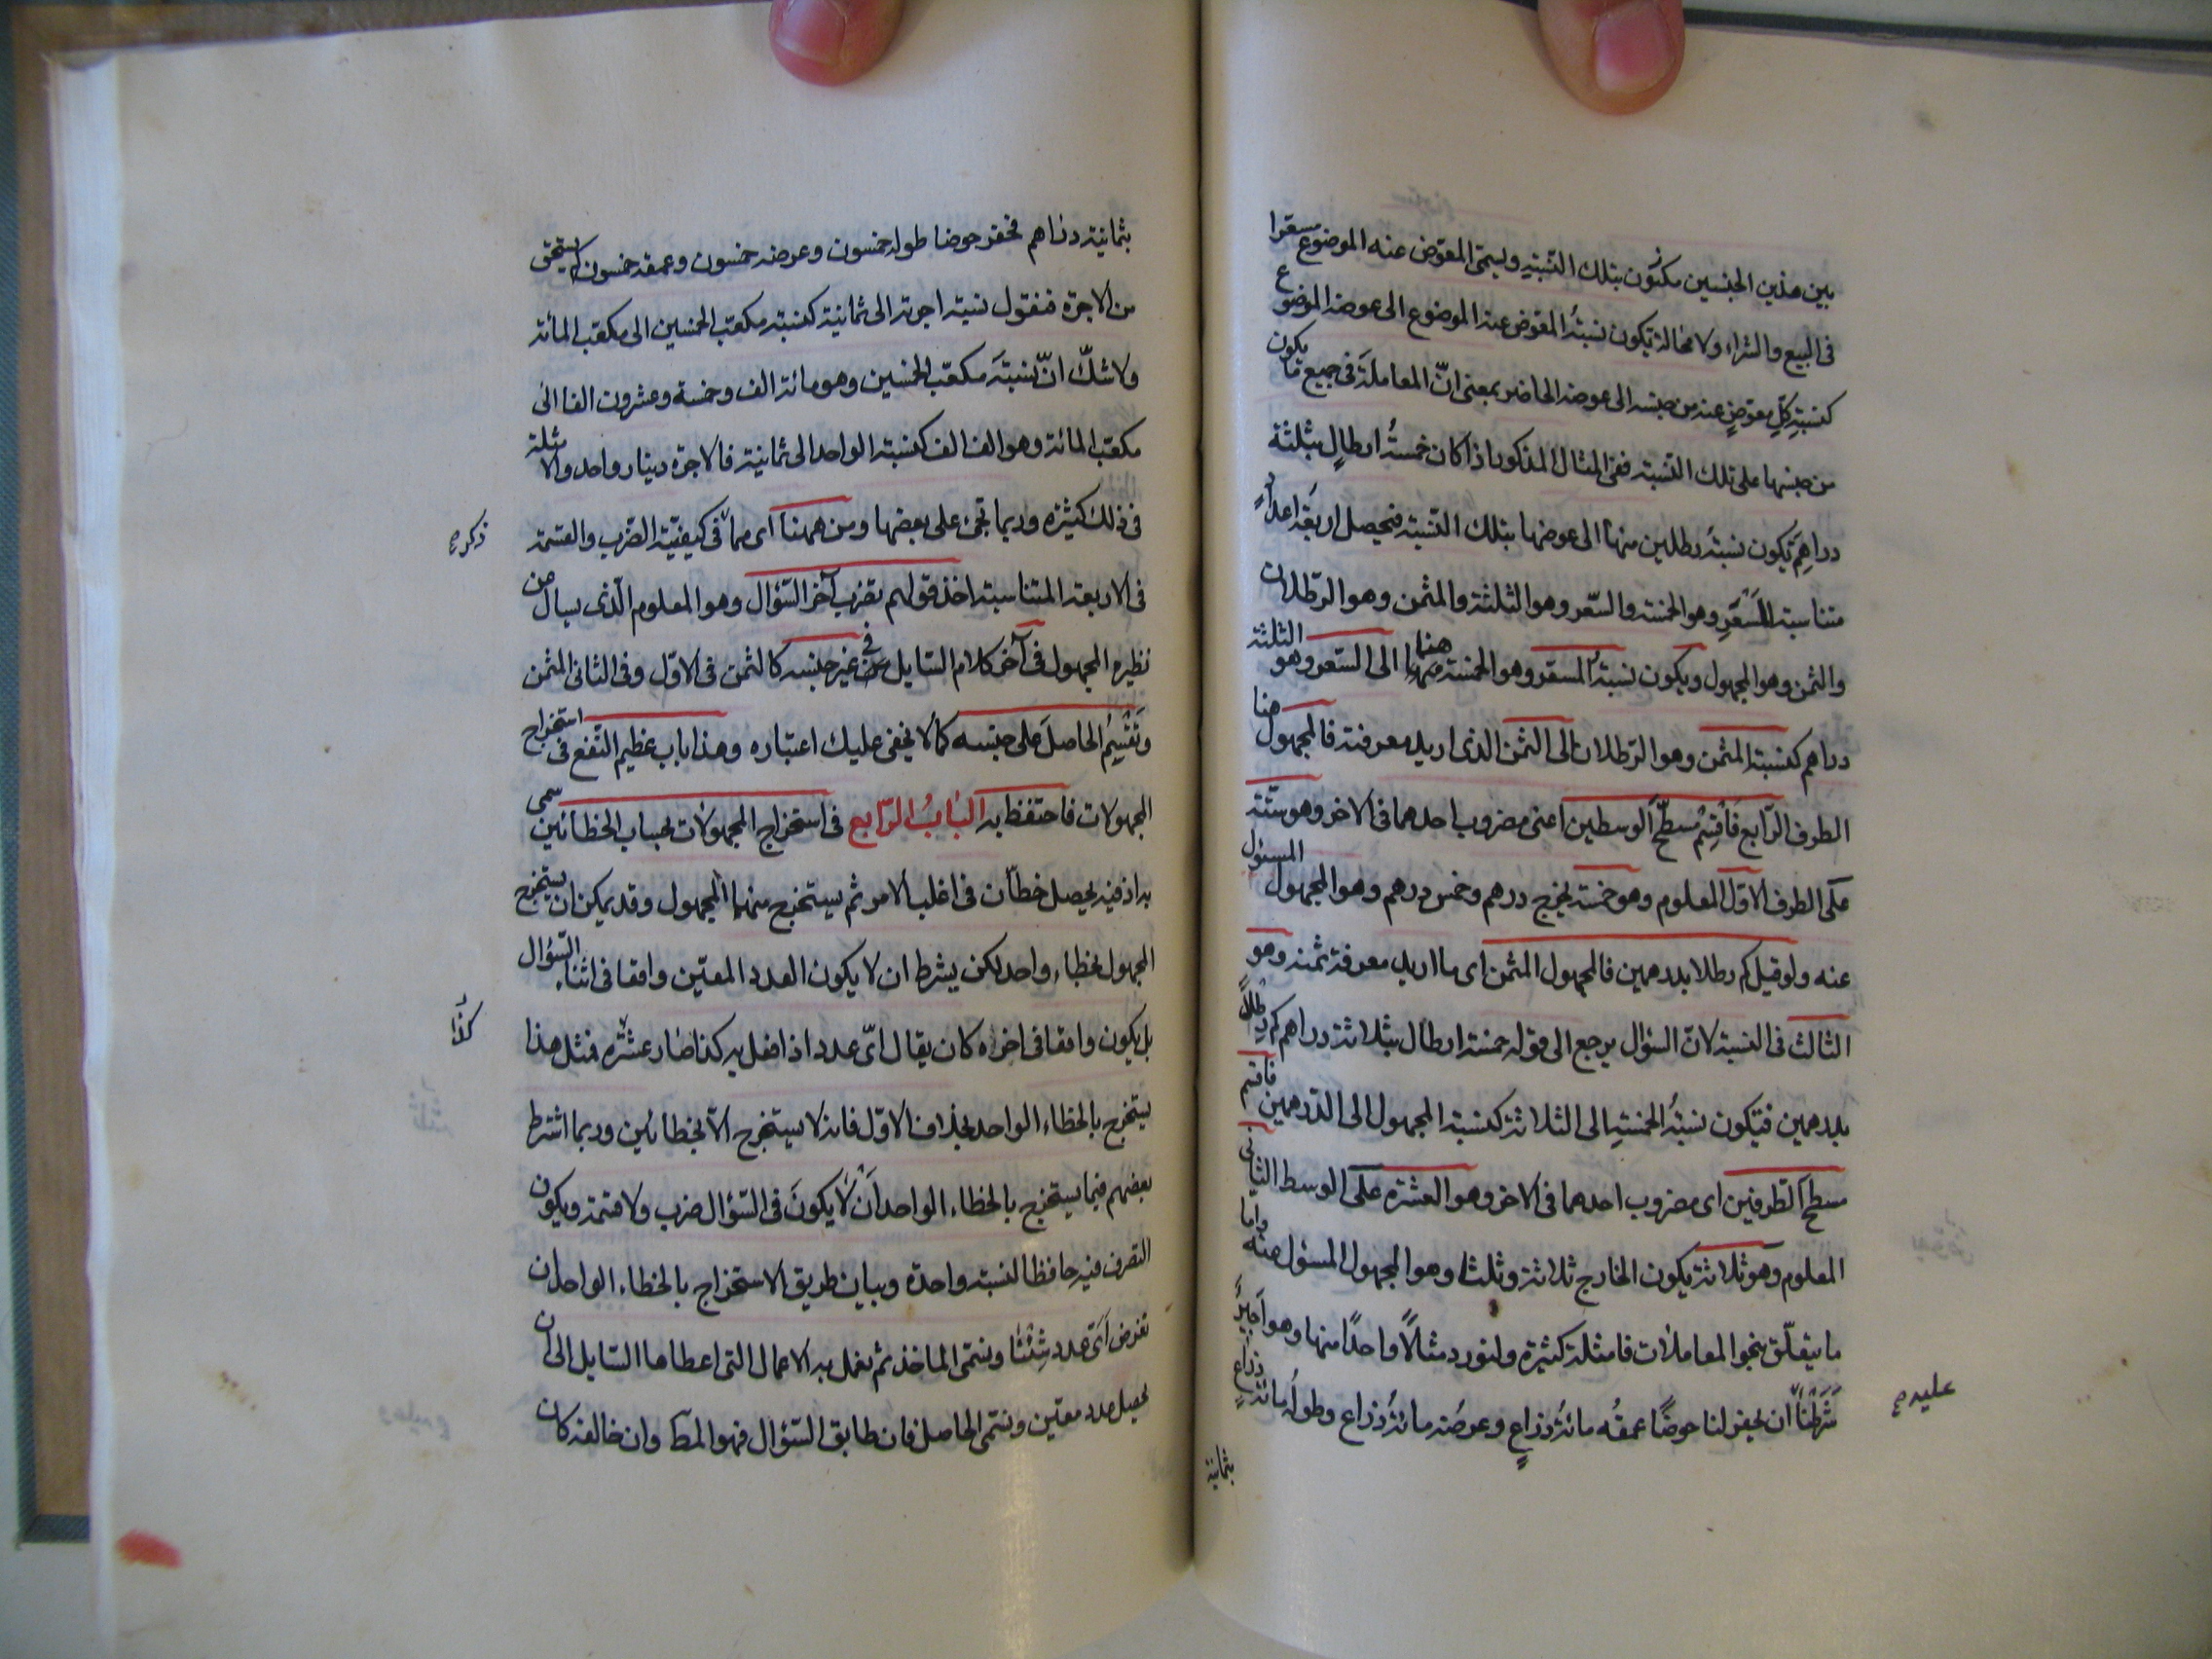 بين هذين الجنسين مكنون بتلك النسبة ويسمى المعوض عنه الموضوع مسعرا
فى البيع والشراء ولا محالة يكون نسبةُ المعوض عنه الموضوع الى عوضه الموضوع
كنسبةِ كلِّ معوضٍ عنه من جنسه الى عوضه الحاضر بمعنى انّ المعاملةَ فى جميع ما يكون
من جنسها على تلك النسبة ففى المثال المذكور اذا كان خمسةُ ارطالٍ بثلثة
دراهم يكون نسبةُ رطلين منها الى عوضها بتلك النسبة فيحصل اربعَة اعدادٍ
متناسبة المُسَعَّرِ وهو الخمسة والسّعر وهو الثلثة والمثمن وهو الرّطلان
والثمن وهو المجهول ويكون نسبةُ المسعّر وهو الخمسة ههنا الى السّعر وهو الثلثة
دراهم كنسبة المثمن وهو الرّطلان الى الثمن الذى اريد معرفته فالمجهول هنا
الطرف الرّابع فَاقْسِمْ مُسطّحَ الوسطين اعنى مضروب احدهما فى الاخر وهو ستّة
عَلَى الطرف الاوّل المعلوم وهو خمسة يخرج درهم وخمس درهم وهو المجهول المسئول
عنه ولو قيل كم رطلا بدرهمين فالمجهول المثمن اى ما اريد معرفة ثمنه وهو
الثالث فى النسبة لانّ السؤال يرجع الى قوله خمسة ارطال بثلاثة دراهم كم رطلاً
بدرهمين فتكون نسبةُ الخمسةِ الى الثلاثة كنسبة المجهول الى الدّرهمين فاقسم
مسطح الطرفين اى مضروب احدهما فى الاخر وهو العشرة على الوسط الثانى
المعلوم وهو ثلاثة يكون الخارج ثلاثة وثلثا وهو المجهول المسئول عنه واما
ما يتعلّق بنحو المعاملات فامثلة كثيرة ولنورد مثالاً واحدًا منها وهو اجيرٌ
شَرَطْنَا ان يحفر لنا حوضًا عمقُه مائةُ ذراعٍ وعرضُه مائةُ ذراع وطولُه مائةُ ذراعٍ
عليه صح
بثمانية
بثمانية دراهم فحفر حوضا طوله خمسون وعرضه خمسون وعمقه خمسون كم يستحق
من الاجرة فنقول نسبة اجرته الى ثمانية كنسبة مكعّب الخمسين الى مكعّب المائة
ولا شكّ انّ نسبةَ مكعّب الخمسين وهو مائة الف وخمسة وعشرون الفا الى
مكعّب المائة وهو الف الف كنسبة الواحد الى ثمانية فالاجرة دينار واحد والامثلة
فى ذلك كثيرة وربما تجئ على بعضها ومن ههنا اى مما فى كيفيّة الضّرب والقسمة
ذكر صح
فى الاربعة المتناسبة اخذ قولهم تضرب آخر السّؤال وهو المعلوم الّذى يسال عن
نظيره المجهول فى آخر كلام السّايل فى غير جنسه كالثمن فى الاوّل وفى الثانى المثمن
وَتَقْسِيمُ الحاصلَ على جنسه كما لا يخفى عليك اعتباره وهذا باب عظيم النّفع فى استخراج
المجهولات فاحتفظ به البَابُ الرّابع فى استخراج المجهولات بحساب الخطائين سمى
به اذ فيه يحصل خطآن فى اغلب الامر ثم يستخرج منهما المجهول وقد يمكن ان يستخرج
المجهول بخطاء واحد لكن يشرط ان لا يكون العدد المعيّن واقعا فى اثناء السّؤال
بل يكون واقعا فى اخره كان يقال اىّ عدد اذا فعل به كذا صار عشرة فمثل هذا
كذا
يستخرج بالخطاء الواحد بخلاف الاوّل فانه لا يستخرج الّا بخطائين وربما اشترط
بعضهم فيما يستخرج بالخطاء الواحد اَنْ لا يكونَ فى السّؤال ضرب ولا قسمة ويكون
التصرف فيه حافظا لنسبة واحدة وبيان طريق الاستخراج بالخطاء الواحد ان
تفرض اَىَّ عدد شِئْتَ ونسمّى الماخذ ثم نعمل به الاعمال التى اعطاها السّايل الى ان
يحصل عدد معيّن ونسمّى الحاصل فان طابق السّؤال فهو المط وان خالفه كان